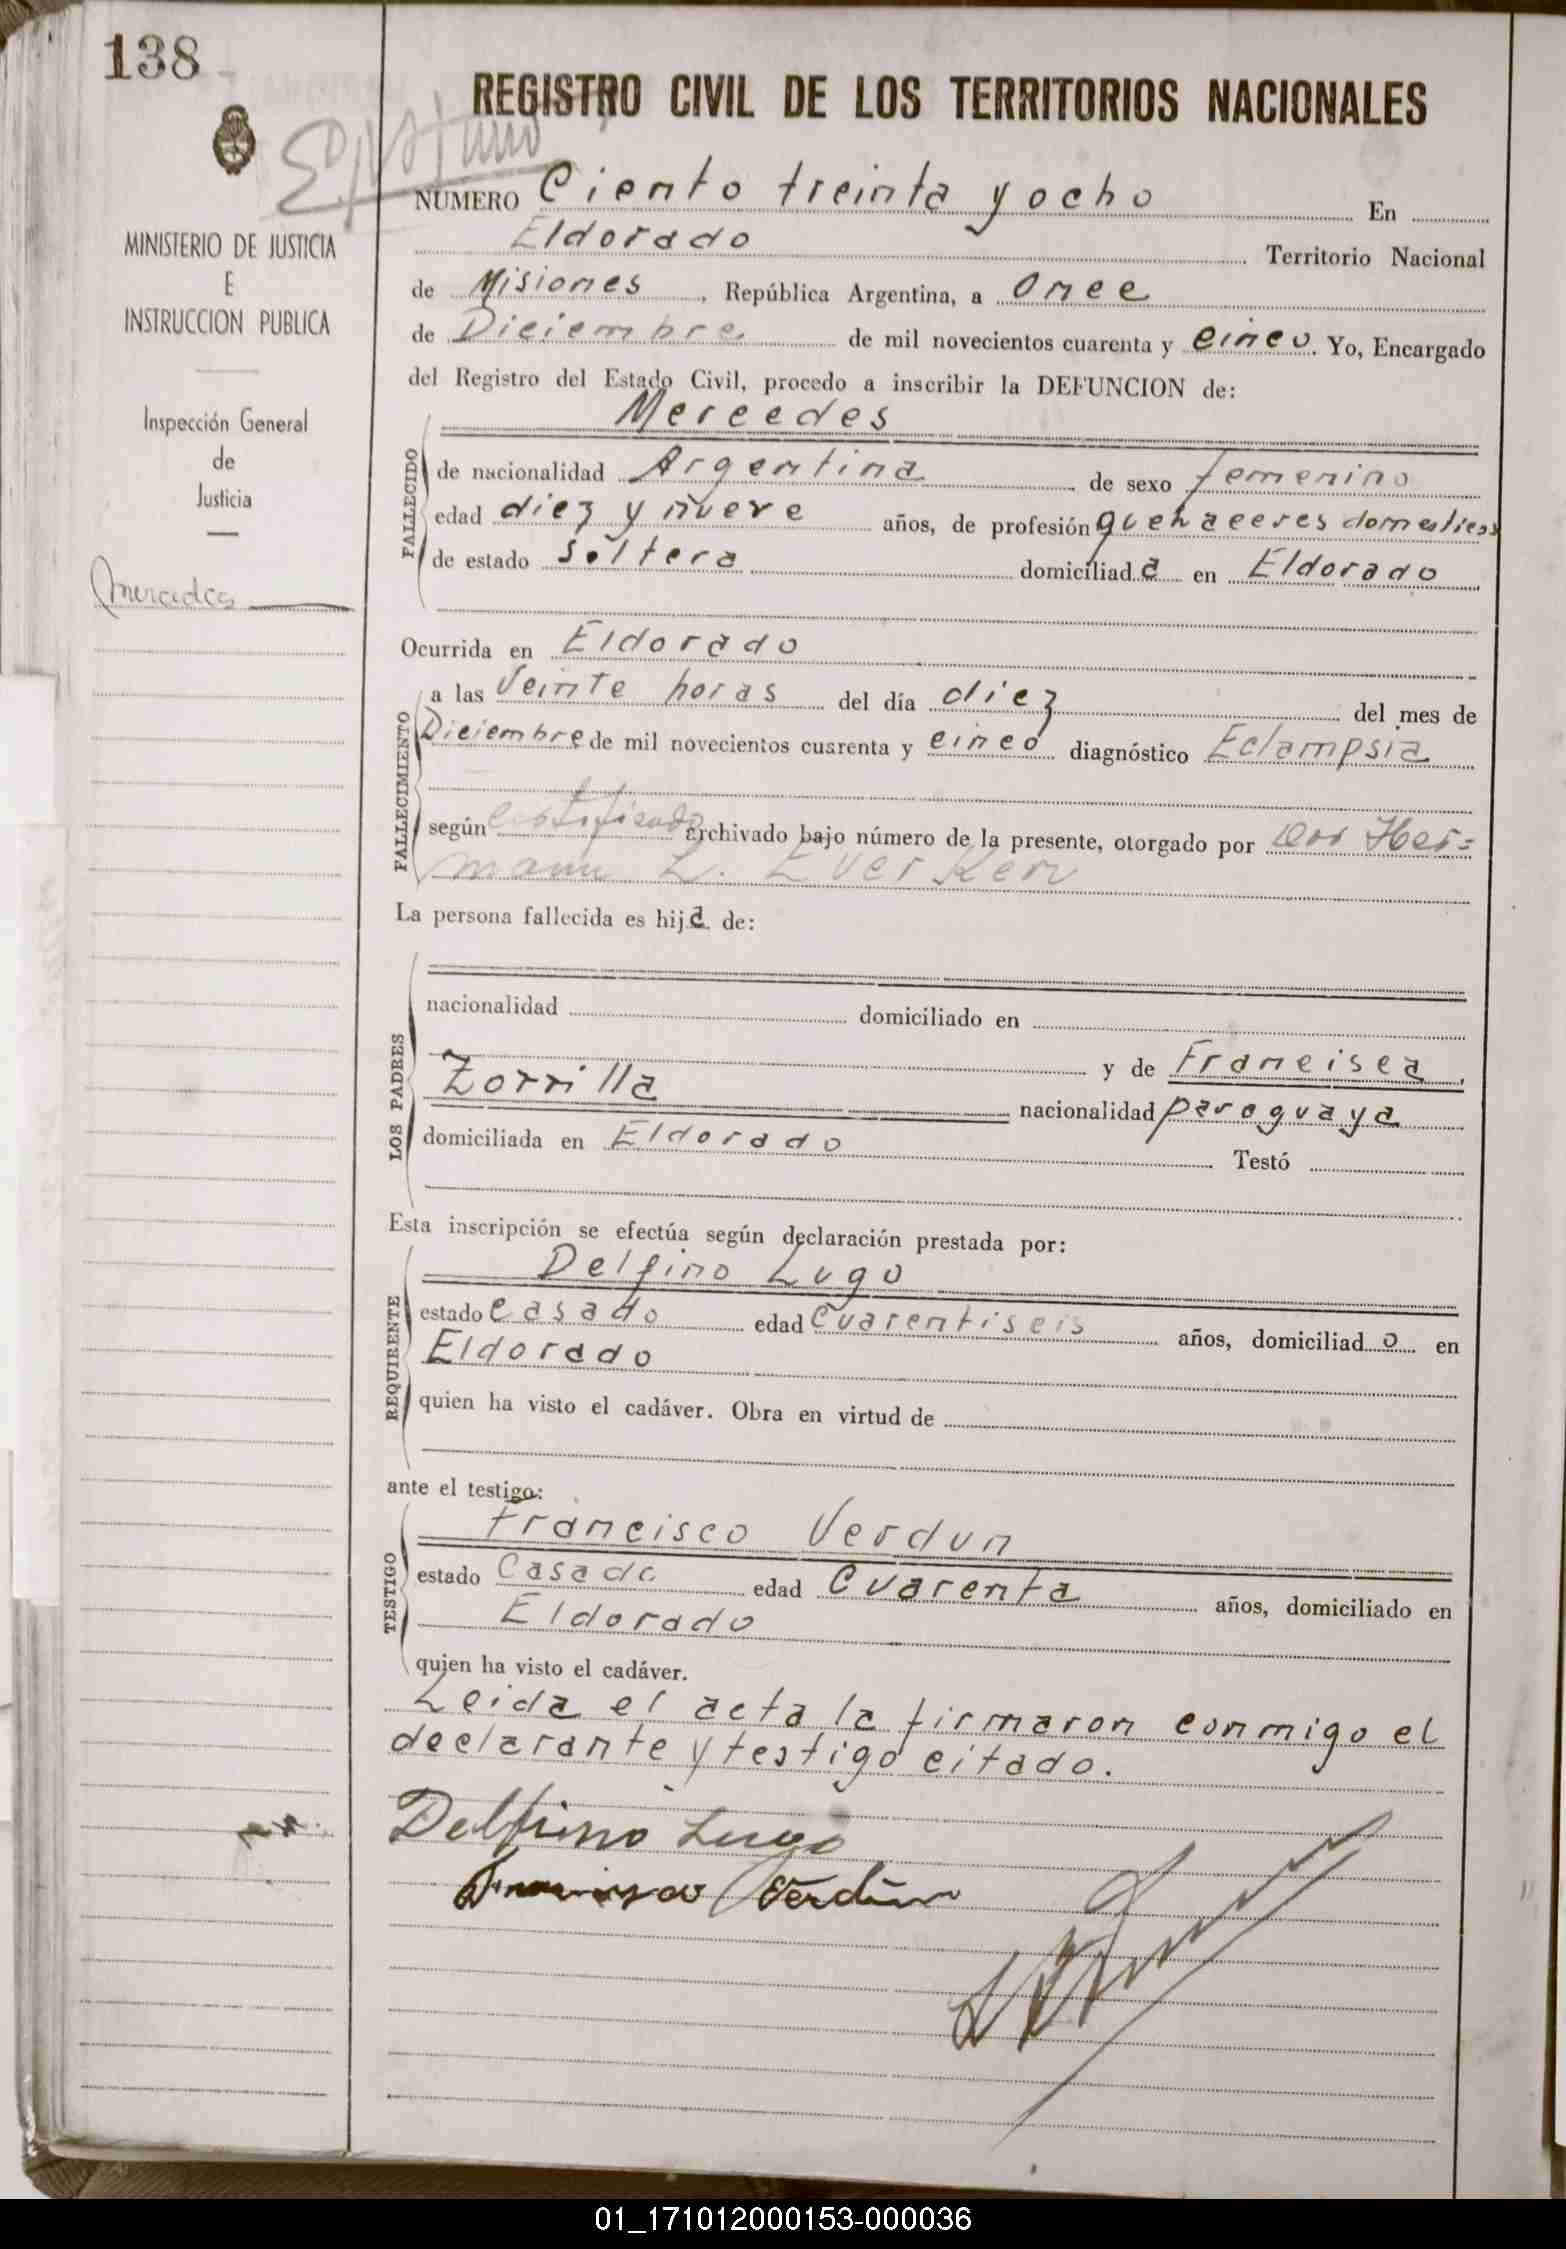 138
REGISTRO CIVIL DE LOS TERRITORIOS NACIONALES
MINISTERIO DE JUSTICIA
E
INSTRUCCION PUBLICA
Inspección General
de
Justicia
Mercedes
NUMERO Ciento treinta y ocho En
Eldorado Territorio Nacional
de Misiones, República Argentina, a Once
de Diciembre de mil novecientos cuarenta y cinco. Yo, Encargado
del Registro del Estado Civil, procedo a inscribir la DEFUNCION de:
Mercedes
FALLECIDO
de nacionalidad Argentina de sexo femenino
edad diez y nueve años, de profesión quehaceres domesticos
de estado soltera domiciliada en Eldorado
Ocurrida en Eldorado
FALLECIMIENTO
a las Veinte horas del día diez del mes de
Diciembre de mil novecientos cuarenta y cinco diagnóstico Eclampsia
según certificado archivado bajo número de la presente, otorgado por Her=
mann L. Everken
La persona fallecida es hija de:
LOS PADRES
nacionalidad domiciliado en
y de Francisca
Zorrilla nacionalidad paraguaya
domiciliada en Eldorado Testó
Esta inscripción se efectúa según declaración prestada por:
Delfino Lugo
REQUIRENTE
estado casado edad cuarentiseis años, domiciliado en
Eldorado
quien ha visto el cadáver. Obra en virtud de
ante el testigo:
Francisco Verdun
TESTIGO
estado Casado edad Cuarenta años, domiciliado en
Eldorado
quien ha visto el cadáver.
Leida el acta la firmaron conmigo el
declarante y testigo citado.
Delfino Lugo
Francisco Verdún
01_171012000153-000036